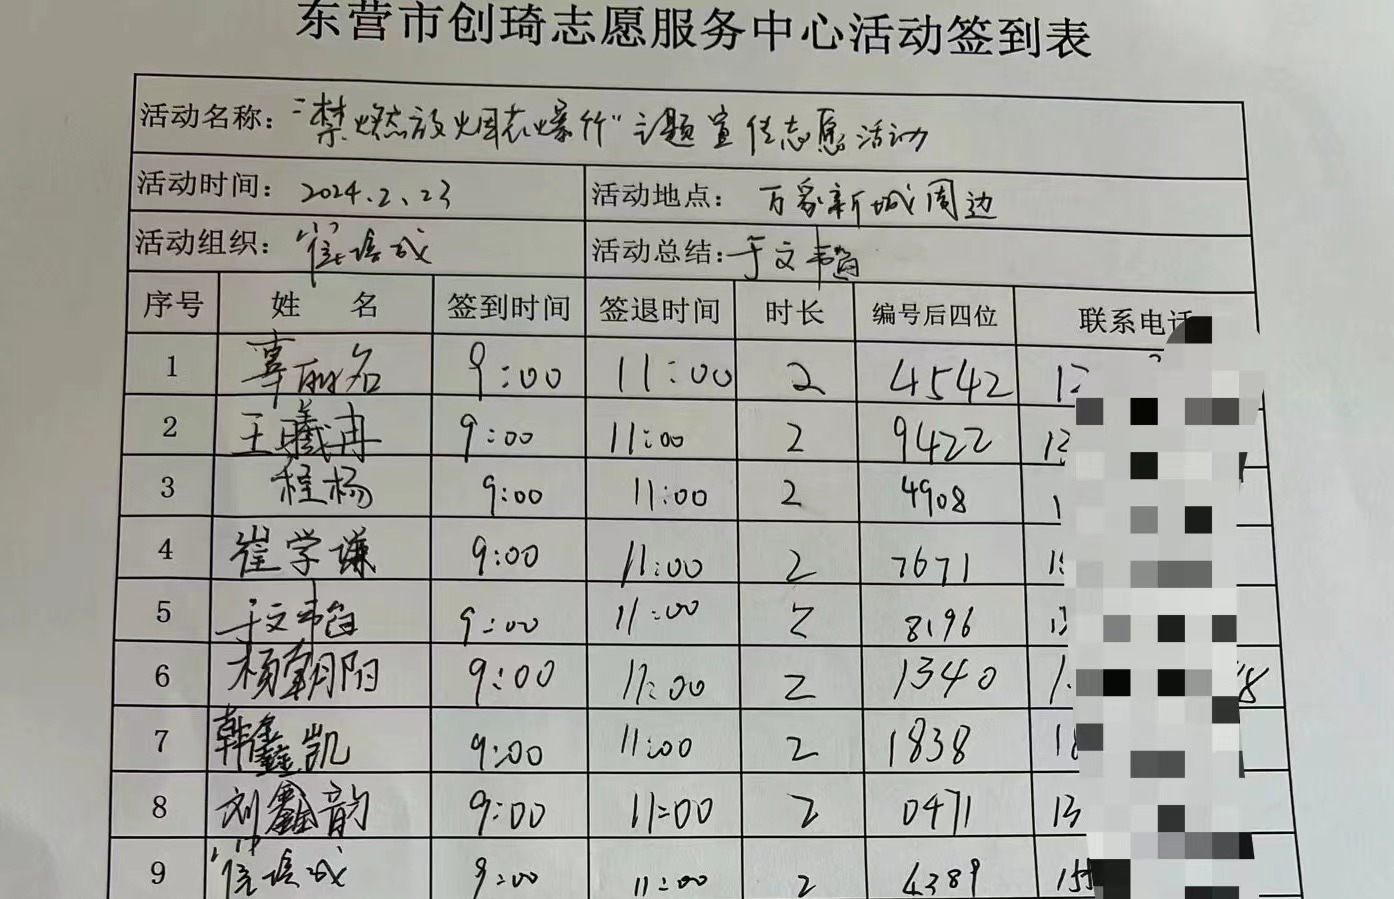 东营市创琦志愿服务中心活动签到表
活动名称: "禁燃放烟花爆竹"主题宣传志愿活动
活动时间: 2024.2.23 活动地点: 万象新城周边
活动组织: 崔培成 活动总结: 于文韬
序号 姓 名 签到时间 签退时间 时长 编号后四位 联系电话
1 9:00 11:00 2 4542
2 王曦冉 9:00 11:00 2 9422 13
3 程杨 9:00 11:00 2 4908 1
4 崔学谦 9:00 11:00 2 7671 15
5 于文韬 9:00 11:00 2 8196
6 杨朝阳 9:00 11:00 2 1340 1
7 韩鑫凯 9:00 11:00 2 1838 18
8 刘鑫韵 9:00 11:00 2 0471 13
9 崔培成 9:00 11:00 2 4389 155